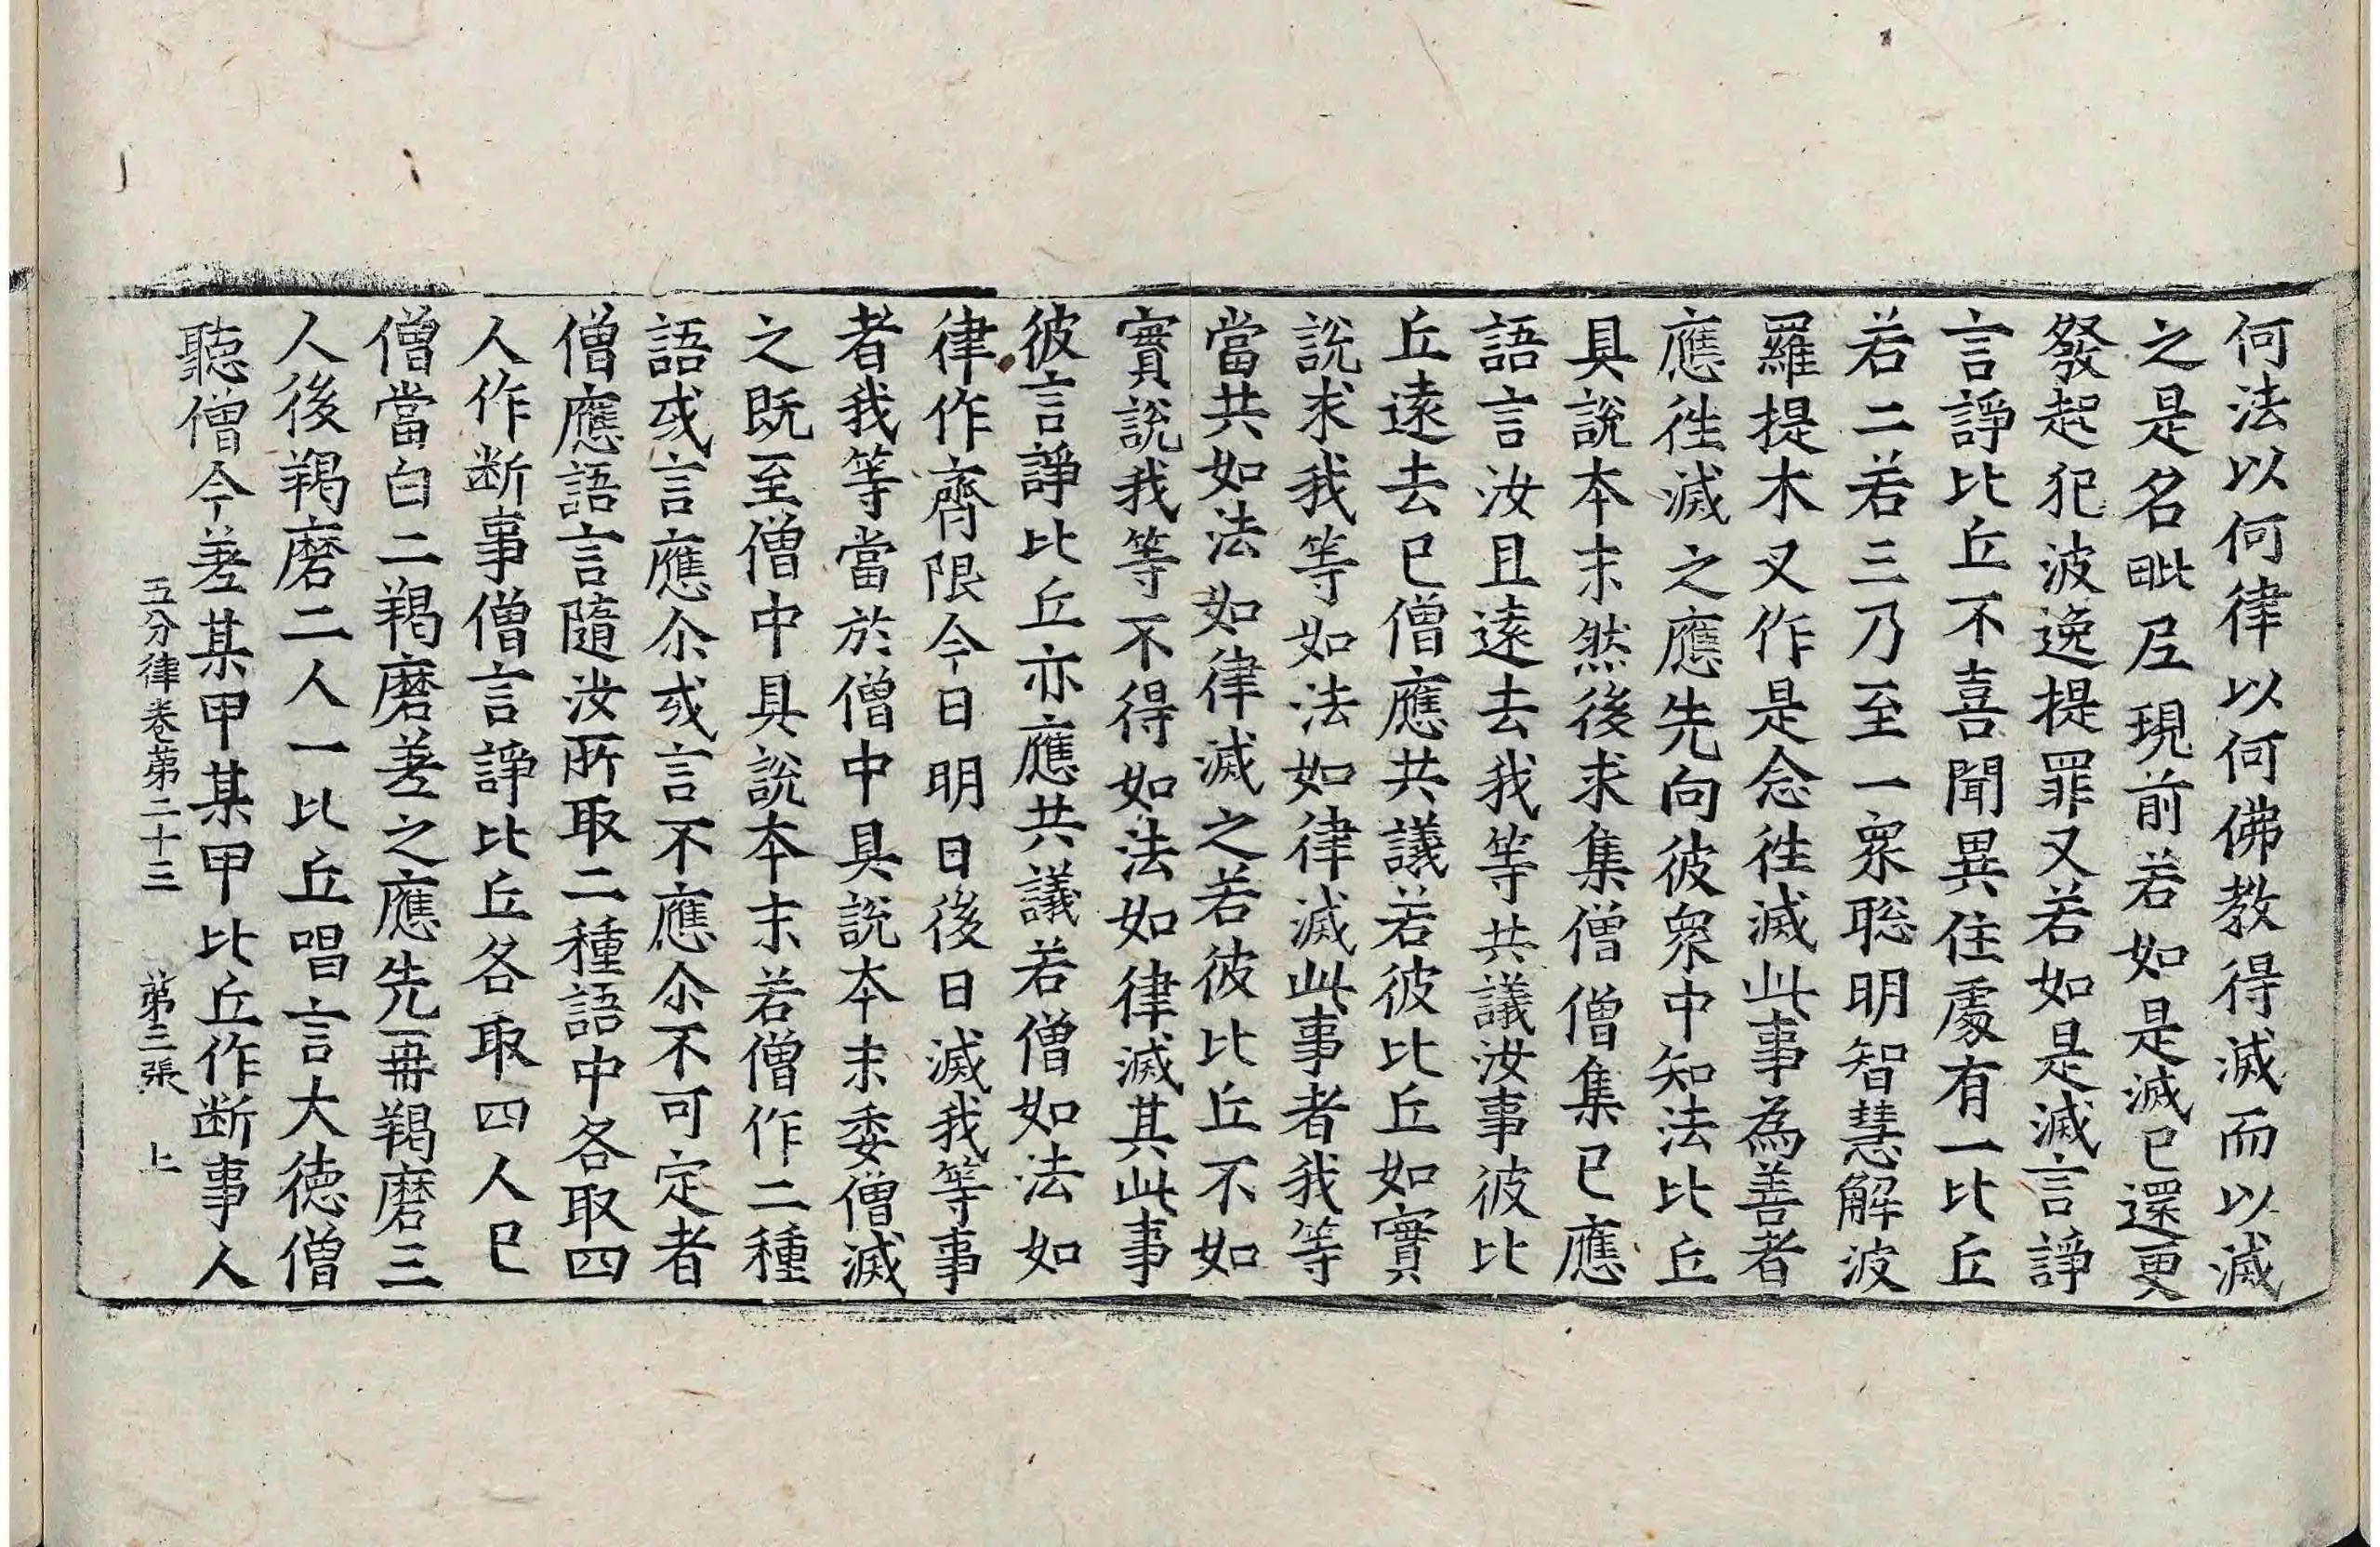 何法以何律以何佛教得滅而以滅
之是名毗尼現前若如是滅已還更
發起犯波逸提罪又若如是滅言諍
言諍比丘不喜聞異住處有一比丘
若二若三乃至一衆聡明智慧解波
羅提木叉作是念徃滅此事為善者
應徃滅之應先向彼衆中知法比丘
具說本末然後求集僧僧集已應
語言汝且遠去我等共議汝事彼比
丘遠去已僧應共議若彼比丘如實
說求我等如法如律滅此事者我等
當共如法如律滅之若彼比丘不如
實說我等不得如法如律滅其此事
彼言諍比丘亦應共議若僧如法如
律作齊限今日明日後日滅我等事
者我等當於僧中具說本末委僧滅
之既至僧中具說本末若僧作二種
語或言應尒或言不應尒不可定者
僧應語言隨汝所取二種語中各取四
人作断事僧言諍比丘各取四人已
僧當白二羯磨差之應先一冊羯磨三
人後羯磨二人一比丘唱言大徳僧
聽僧今差某甲某甲比丘作断事人
五分律卷苐二十三　苐三張　上